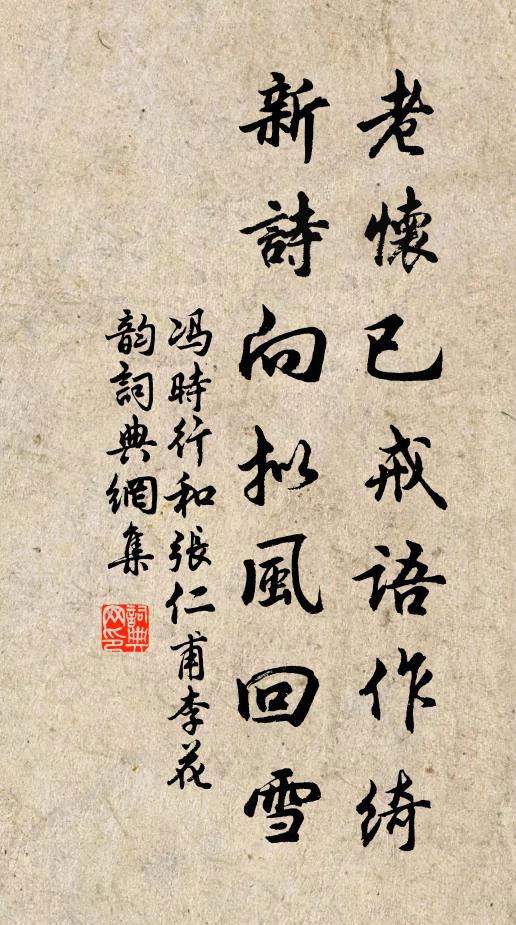 老懷已戒語作綺
新詩向拟風回雪
冯時行和張仁甫李花
韵詞典網集
詞典网印